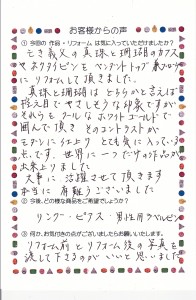 お客様からの声
① 今回の作品・リフォームは気に入っていただけましたか?
亡き義父の真珠と珊瑚のカフス
やネクタイピンをペンダントトップ兼ブローチ
にリフォームして頂きました。
真珠と珊瑚はどちらかと言えば
控え目でやさしそうな印象ですが
それらをクールなホワイトゴールドで
囲んで頂き そのコントラストが
モダンに仕上り とても気に入っている
点です。世界に一つだけの作品が
出来上りました
大事に活躍させて頂きます
本当に有難うございました
② 今後、どの様な商品をご希望でしょうか?
リング・ピアス・男性用ラペルピン
③ 何か、お気付きの点がございましたらお願いいたします。
リフォーム前とリフォーム後の写真を
渡して下さるのがいいと思いました